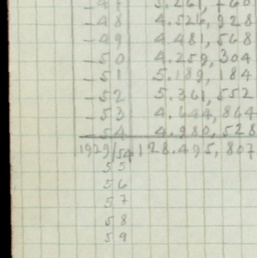 -47 5.261,760
-48 4.526,928
-49 4.481,568
-50 4.259,304
-51 5.189,184
-52 5.361,552
-53 4.644,864
-54 4.980,528
1929/54 128.495,807
55
56
57
58
59